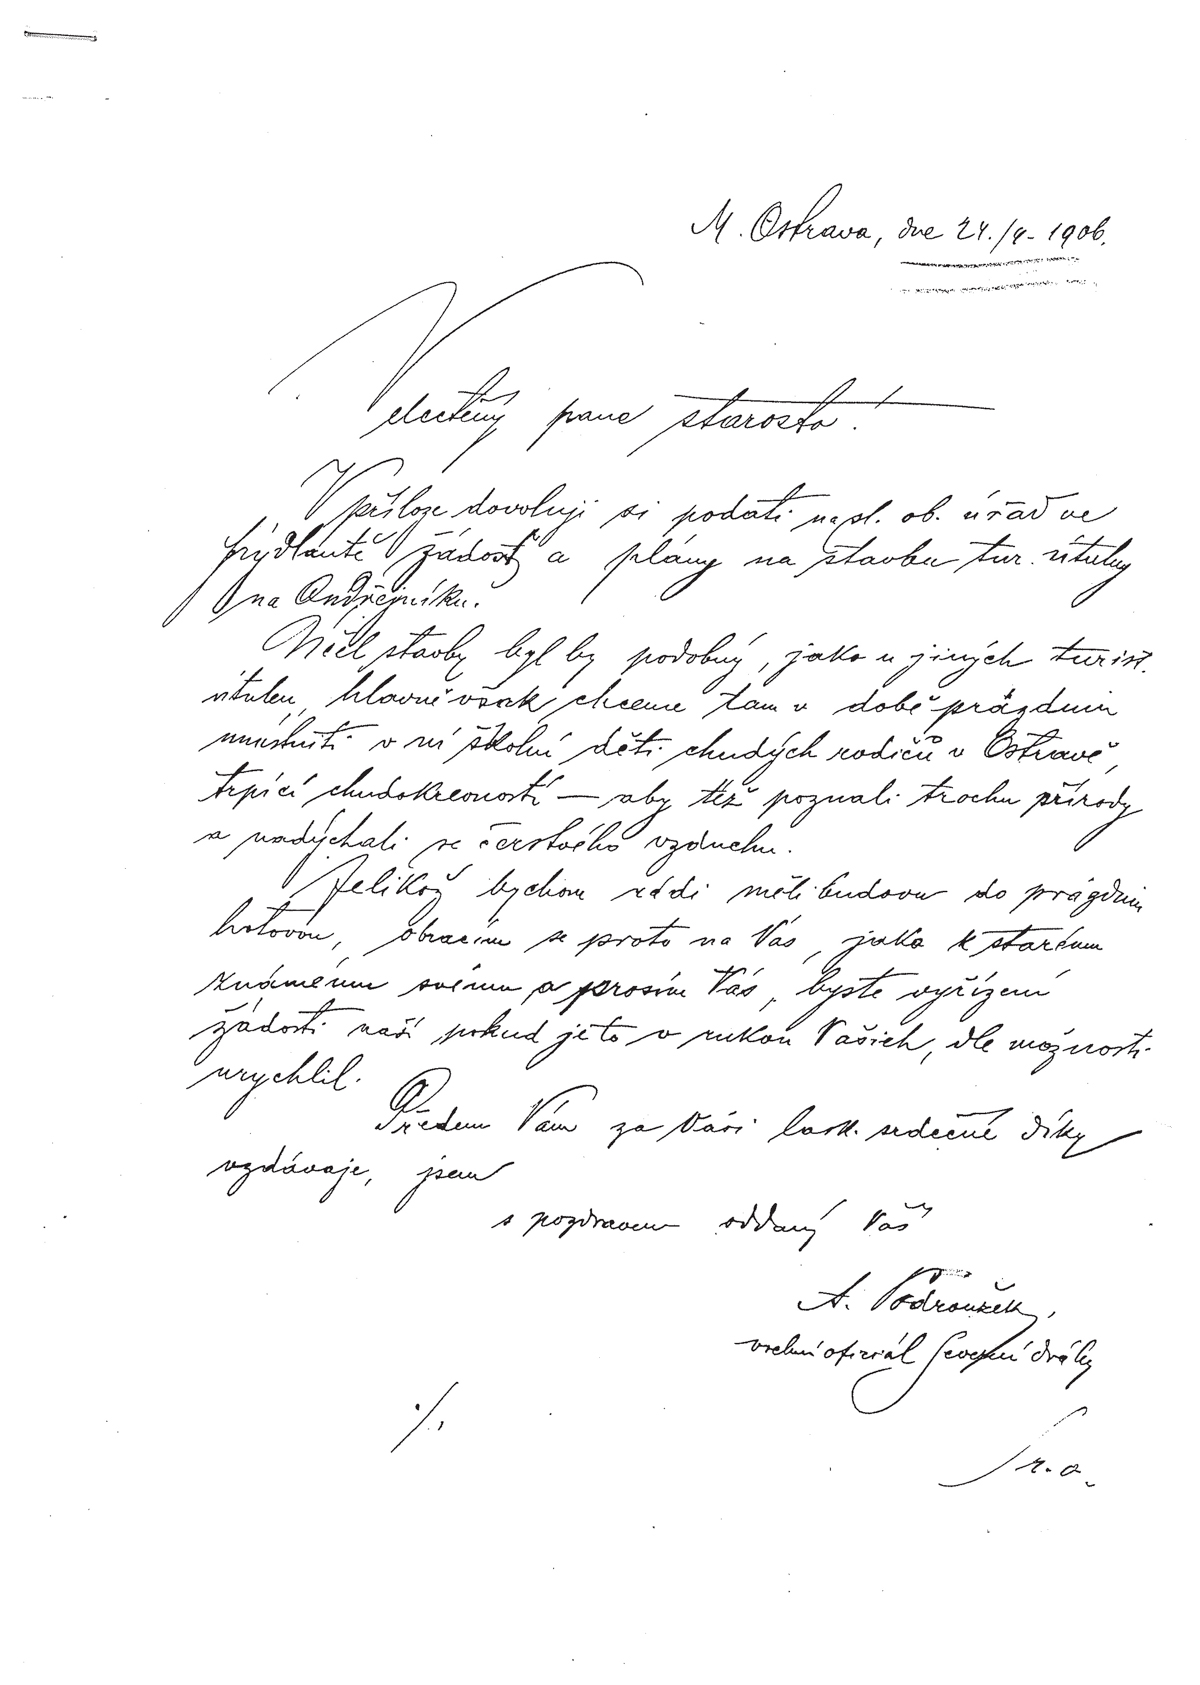 M. Ostrava, dne 24./4. 1906.
Velectěný pane starosto!
V příloze dovoluji si podati ob. úřad ve
Frýdlantě žádost a plány na stavbu tur. útulny
na Ondřejníku.
Účel stavby byl by podobný, jako u jiných turist.
útulen, hlavně však chceme tam v době prázdnin
umístniti v ní školní děti chudých rodičů v Ostravě,
trpící chudokrevností — aby též poznali trochu přírody
a nadýchali se čerstvého vzduchu.
Jelikož bychom rádi měli budovu do prázdnin
hotovou, obracím se proto na Vás, jako k starému
známému svému a prosím Vás, byste vyřízení
žádosti naší pokud je to v rukou Vašich, dle možnosti
urychlil.
Předem Vám za Vaši lask. srdečné díky
vzdávaje, jsem
s pozdravem oddaný Váš
A. Podroužek,
vrchní oficiál Severní dráhy
./.